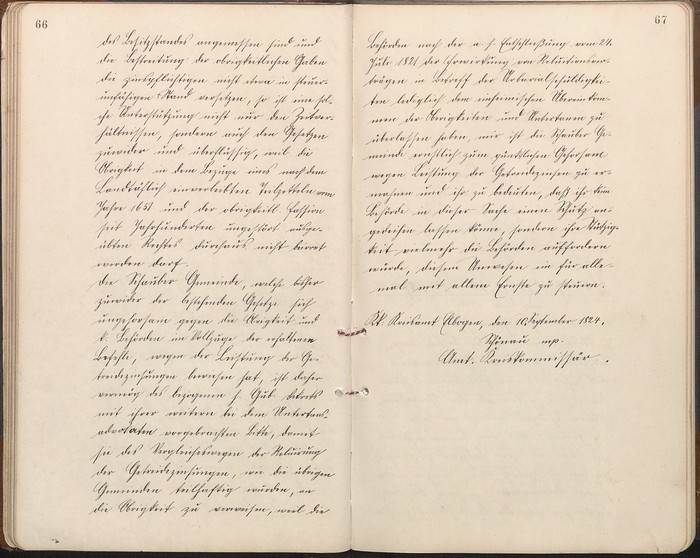 66
des Besitzstandes angemessen sind und
die Bestreitung der obrigkeitlichen Gaben
die zinspflichtigen nicht etwa in steuer-
unfähigen Stand versetzen, so ist eine sol-
che Unterstützung nicht nur den Zeitver-
hältnissen, sondern auch den Gesetzen
zuwider und überflüssig, weil die
Obrigkeit in dem Bezuge eines nach dem
Landtäflich einverleibten Teilzetteln vom
Jahre 1651 und der obrigkeitl. Fassion
seit Jahrhunderten ungestört ausge-
übten Rechtes durchaus nicht beirret
werden darf.
Die Schauber Gemeinde, welche bisher
zuwider der bestehenden Gesetze sich
ungehorsam gegen die Obrigkeit und
k. Behörden im Vollzuge der erhaltenen
Befehle, wegen der Leistung der Ge-
treidezinsungen bewiesen hat, ist daher
vermög des bezogenen h. Gub. Dekrets
mit ihrer weitern bei dem Untertans-
advokaten vorgebrachten Bitte, damit
sie des Vergleichswegen der Reluirung
der Getreidezinsungen, wie die übrigen
Gemeinden teilhaftig würden, an
die Obrigkeit zu verweisen, weil die
67
Behörden nach der a. h. Entschließung vom 24.
Juli 1821 die Erwirkung von Reluitionsver-
trägen in Betreff der Urbarialschuldigkei-
ten lediglich dem einheimischen Übereinkom-
men der Obrigkeiten und Untertanen zu
überlassen haben, nur ist die Schauber Ge-
meinde ernstlich zum pünktlichen Gehorsam
wegen Leistung der Getreidezinsen zu er-
mahnen und ihr zu bedeuten, daß ihr keine
Behörde in dieser Sache einen Schutz an-
gedeihen lassen könne, sondern ihre Stützig-
keit vielmehr die Behörden auffordern
würde, diesem Unwesen ein für alle-
mal mit allem Ernste zu steuern.
Kk. Kreisamt Elbogen, den 10. September 1824.
Schönau mp.
Amt. Kreiskommissär.